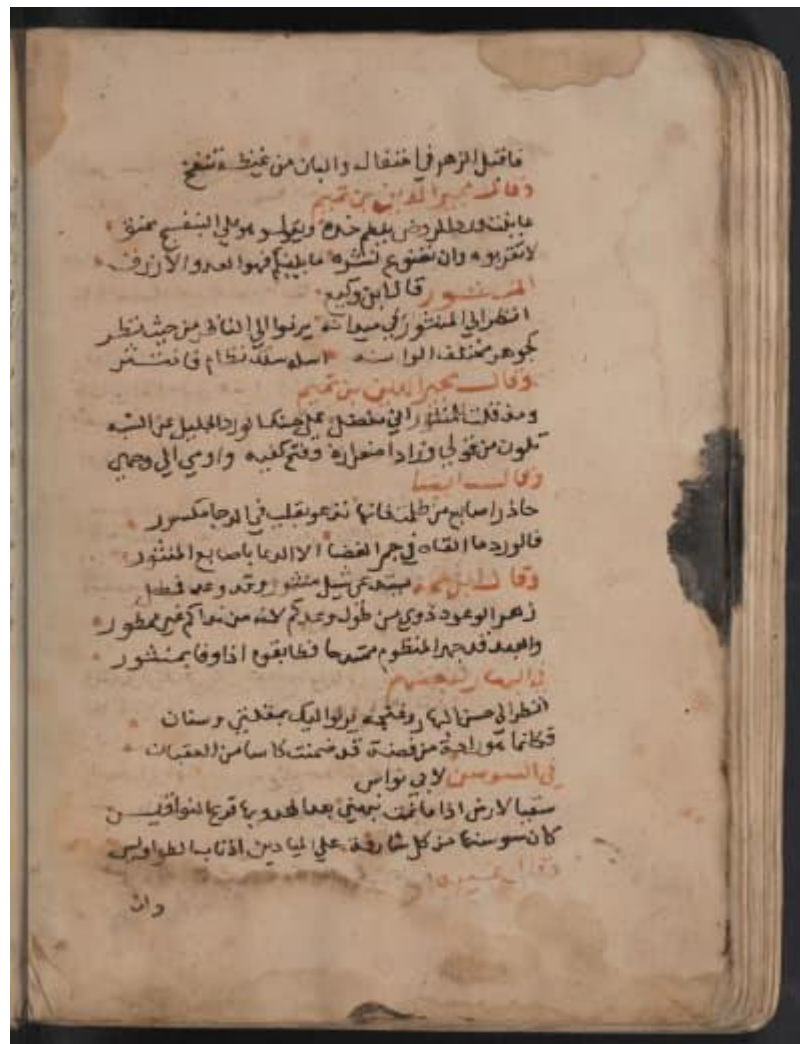 فاقبل الزهر في احتفال والبان من غيظه تنفخ
وقال مجير الدين بن تميم
عاينت ورد الروض يلطم خده ويقول وهو على البنفسج محنق
لا تقربوه وان تضوع نشره ما بينكم فهو العدو الازرق
المنثور قال ابن وكيع
انظر الي المنثور في ميدانه يرنو الي الناظر من حيث نظر
كجوهر مختلف الوانه اسلمه سلك نظام فانتثر
وقال مجير الدين بن تميم
ومذ قلت للمنثور اني مفضل على حسنك الورد الجليل عن الشبه
تلون من قولي وزاد اصفراره وفتح كفيه واومي الي وجهي
وقال ايضا
حاذر اصابع من ظلمت فانه تدعو بقلب في الدجا مكسور
فالورد ما القاه في جمر الغضا الا الدعا باصابع المنثور
وقال ابن عن شيل منثور وقد وعد فمطل
زهر الوعود ذوي من طول وعدكم لانه من نداكم غير ممطور
والعبد قد جهز المنظوم ممتدحا فطابقوه اذا وفا بمنثور
في البهار لبعضهم
انظر الي حسن البهار وغنجه يرنو اليك بمقلتي وسنان
فكانما هو راحة من فضة قد ضمنت كاسا من العقيان
في السوسن لابي نواس
سقيا لارض اذا ما نمت نبهني بعد الهدو بها قرع النواقيس
كان سوسنها من كل شارفة علي الميادين اذناب الطواويس
وقال
وان